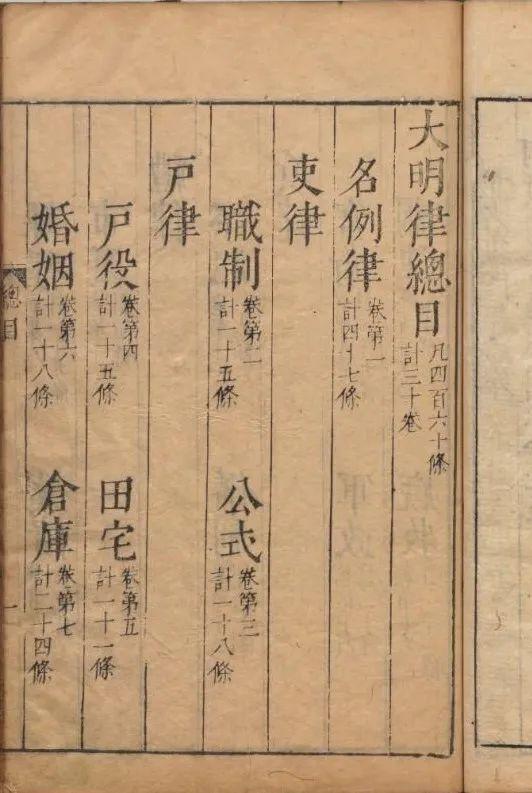 大明律總目 凡四百六十條 計三十卷
名例律 卷第一 計四十七條
吏律
職制 卷第二 計一十五條 公式 卷第三 計一十八條
戶律
戶役 卷第四 計一十五條 田宅 卷第五 計一十一條
婚姻 卷第六 計一十八條 倉庫 卷第七 計二十四條
總目 一